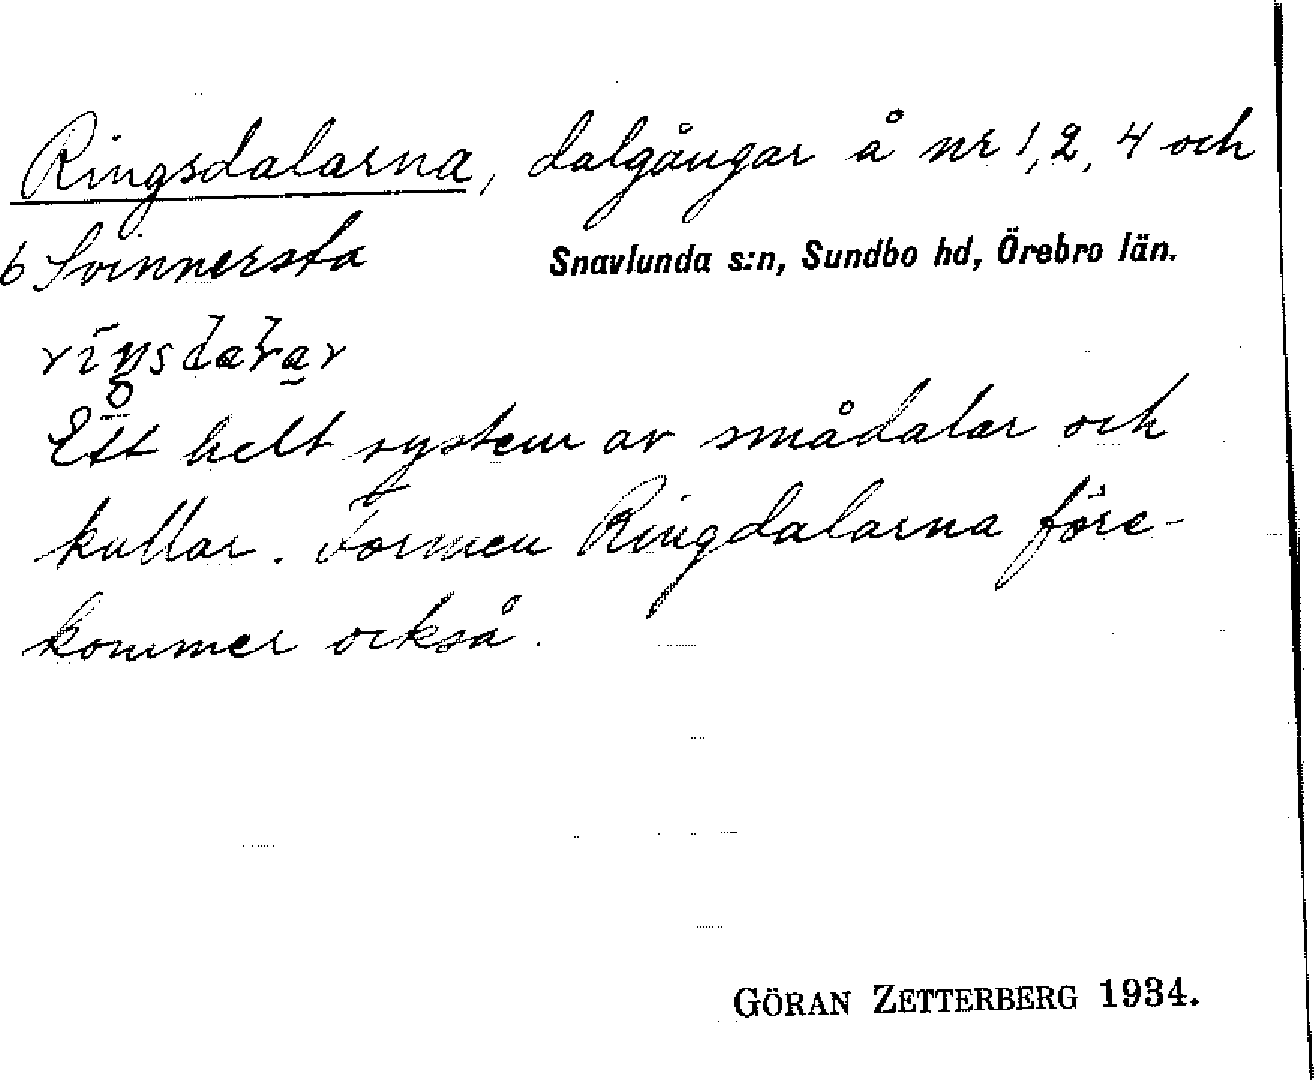 Ringsdalarna, dalgångar å nr 1, 2, 4 och
6 Svinnersta
Snavlunda s:n, Sundbo hd, Örebro län.
Ett helt system av smådalar och
kullar. Formen Ringdalarna före-
kommer också.
GÖRAN ZETTERBERG 1934.